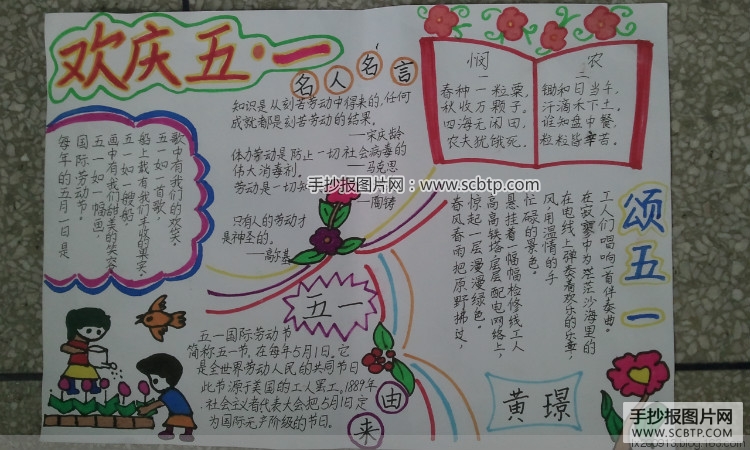 欢庆五·一
名人名言
知识是从刻苦劳动中得来的,任何
成就都是刻苦劳动的结果。
——宋庆龄
体力劳动是防止一切社会病毒的
伟大消毒剂。——马克思
劳动是一切知
——陶铸
只有人的劳动才
是神圣的。
——高尔基
悯农
一
春种一粒粟,
秋收万颗子。
四海无闲田,
农夫犹饿死。
二
锄禾日当午,
汗滴禾下土。
谁知盘中餐,
粒粒皆辛苦。
每年的五月一日是
国际劳动节。
五一如一幅画,
画中有我们甜美的笑容
五一如一艘船,
船上载有我们丰收的果实。
五一如一首歌,
歌中有我们的欢笑。
颂五一
春风春雨把原野拂过,
惊起一层漫漫绿色。
高高铁塔层层配电网络上,
悬挂着一幅幅检修线工人
忙碌的景色。
风用温情的手
在电线上弹奏着欢乐的乐章,
在寂寞中为茫茫沙海里的
工人们唱响一首伴奏曲。
五一
由来
五一国际劳动节
简称五一节,在每年5月1日。它
是全世界劳动人民的共同节日
此节源于美国的工人罢工,1889年
社会主义者代表大会把5月1日定
为国际无产阶级的节日。
黄璟
手抄报图片网 www.scbtp.com
手抄报图片网
WWW.SCBTP.COM